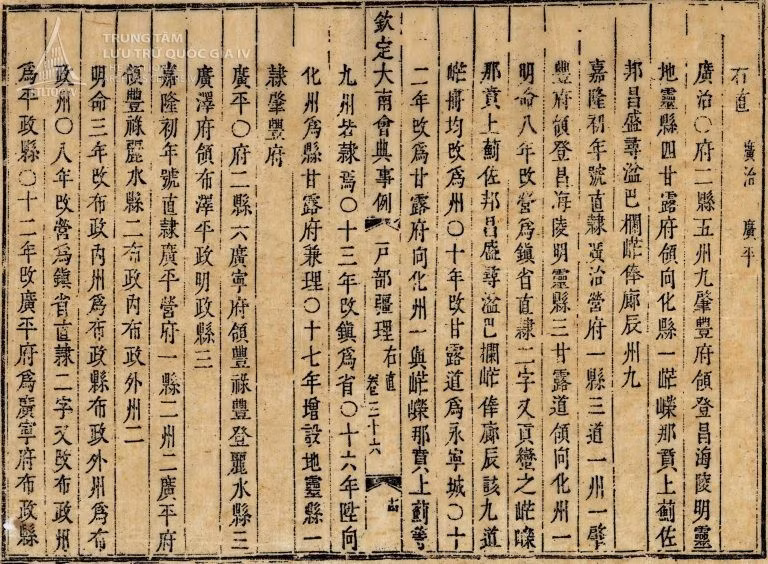 右直 廣治 廣平
廣治〇府二縣五州九肇豐府領登昌海陵明靈
地靈縣四甘露府領向化縣一𡵆嶸那賁上蘄佐
邦昌盛尋湓巴欄𡵆俸廊辰州九
嘉隆初年號直隸廣治營府一縣三道一州一肇
豐府領登昌海陵明靈縣三甘露道領向化州一
明命八年改營爲鎮省直隸二字又貢蠻之𡵆嶸
那賁上蘄佐邦昌盛尋湓巴欄𡵆俸廊辰該九道
𡵆冊均改爲州〇十年改甘露道爲永寧城〇十
二年改爲甘露府向化州一與𡵆嶸那賁上蘄等
欽定大南會典事例 戶部疆理 右直 卷三十六 十四
九州若隸焉〇十三年改鎮爲省〇十六年陞向
化州爲縣甘露府兼理〇十七年增設地靈縣一
隸肇豐府
廣平〇府二縣六廣寧府領豐祿豐登麗水縣三
廣澤府領布澤平政明政縣三
嘉隆初年號直隸廣平營府一縣二州二廣平府
領豐祿麗水縣二布政內布政外州二
明命三年改布政內州爲布政縣布政外州爲布
政州〇八年改營爲鎮省直隸二字又改布政州
爲平政縣〇十二年改廣平府爲廣寧府布政縣
TRUNG TÂM
LƯU TRỮ QUỐC GIA IV